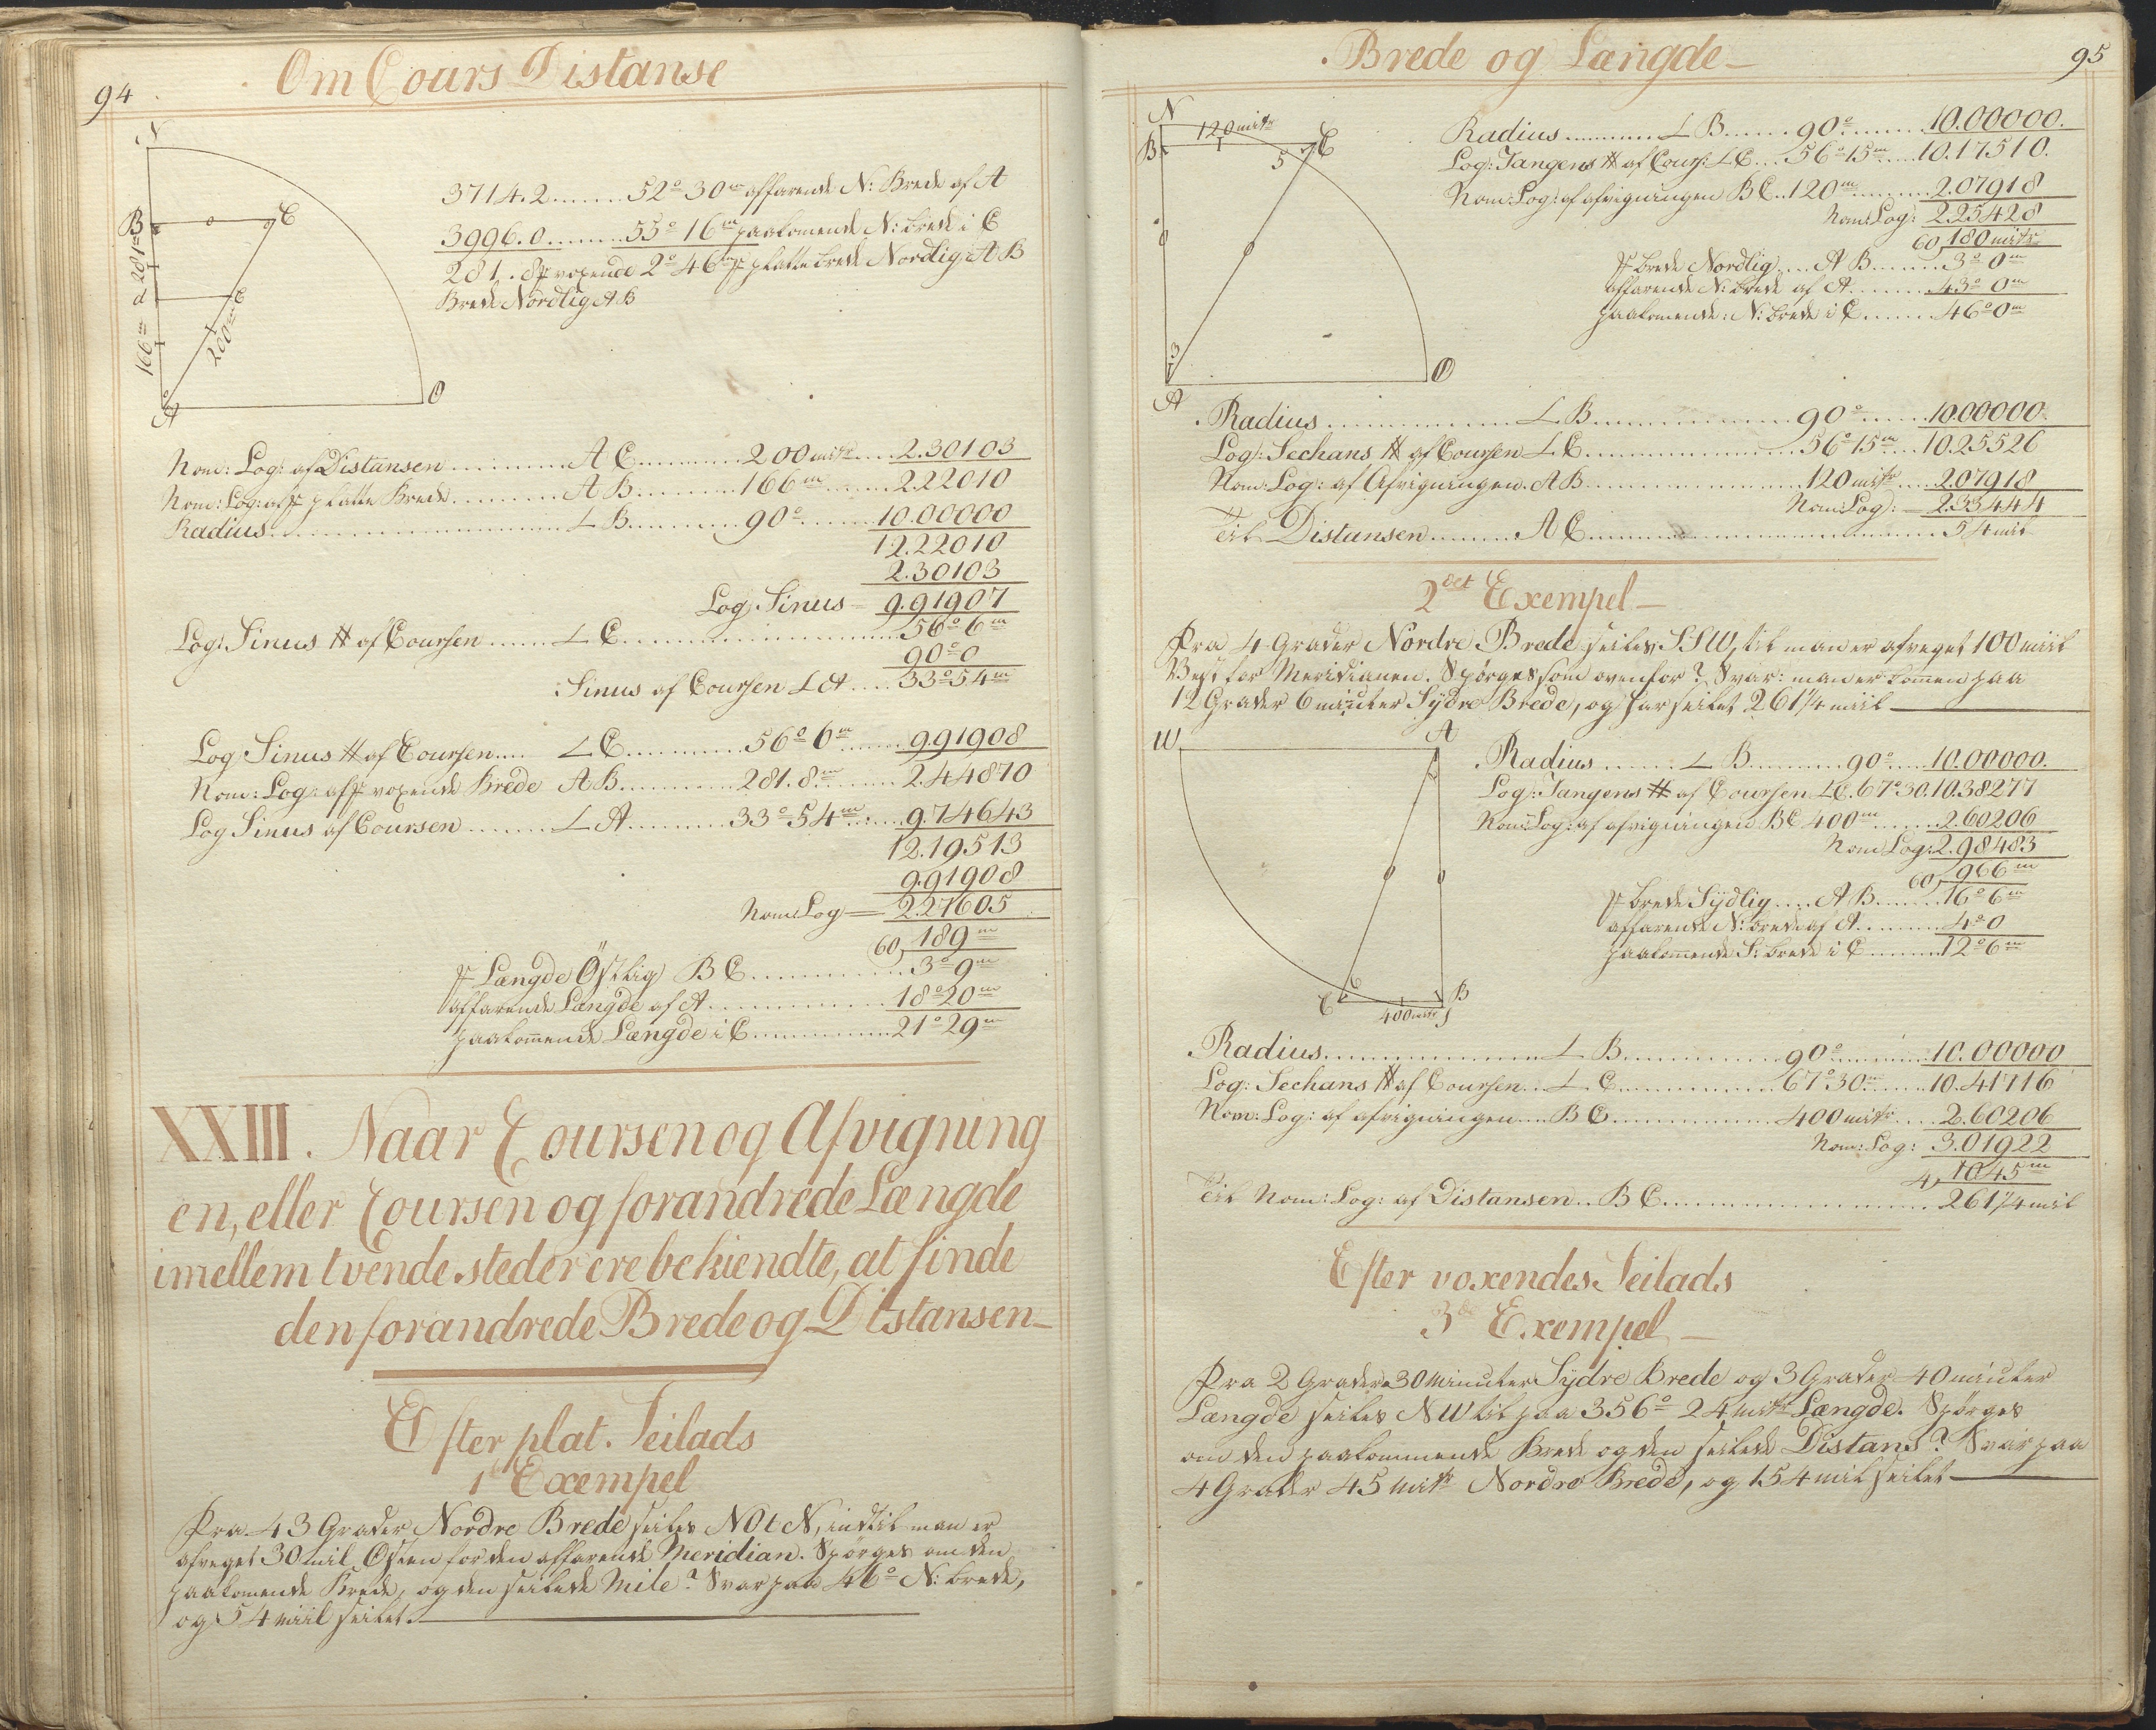 94
Om Cours Distanse
N
B
C
281 m
d
e
166 m
200 m
A
O
3714.2 ....... 52° 30 m affarende N: Brede af A
3996.0 ........ 55° 16 m paakomende N: brede i C
281.8 f voxende 2° 46 m f platte brede Nordlig A B
Brede Nordlig AB
Nom: Log: af Distansen ............ A C .......... 200 mitr .... 2.30103
Nom: Log: af f platte Brede .......... A B .......... 166 m ........ 2.22010
Radius ........................ L B .......... 90° ........ 10.00000
12.22010
2.30103
Log: Sinus = 9.91907
Log: Sinus # af Coursen ...... L C ........................ 56° 6 m
90° 0
Sinus af Coursen L A .... 33° 54 m
Log Sinus # af Coursen .... L C .......... 56° 6 m ....... 9.91908
Nom: Log: af f voxende Brede A B .......... 281.8 m ........ 2.44870
Log Sinus af Coursen ....... L A ......... 33° 54 m ...... 9.74643
12.19513
9.91908
Nom: Log = 2.27605
60, 189 m
f Længde Östlig B C ............ 3° 9 m
affarende Længde af A ............... 18° 20 m
paakommende Længde i C ............ 21° 29 m
XXIII. Naar Coursen og Afvigning
en, eller Coursen og forandrede Længde
imellem tvende steder ere bekiendte, at finde
den forandrede Brede og Distansen
Efter plat. Seilads
1te Exempel
Fra 43 Grader Nordre Brede seiles NOtN, indtil man er
afveget 30 mil Østen for den affarende Meridian. Spörges om den
paakomende Brede, og den seilede Mile? Svar paa 46° N: brede,
og 54 miil seilet.
Brede og Længde
95
N
120 mitr
B
5
C
3
A
O
Radius ............ L B ....... 90° ....... 10.00000.
Log: Tangens # af Cours: L C ... 56° 15 m .... 10.17510.
Nom: Log: af afvigningen B C .. 120 m ......... 2.07918
Nom: Log: 2.25428
60, 180 mitr
f brede Nordlig .... A B ....... 3° 0 m
affarende N: brede af A ........ 43° 0 m
paakomende: N: brede i C ....... 46° 0 m
Radius .................. L B .................. 90° ...... 10.00000.
Log: Sechans # af Coursen L C .................. 56° 15 m ... 10.25526
Nom: Log: af Afvigningen. A B .................. 120 mitr .... 2.07918
Nom: Log: = 2.33444
Til Distansen ......... A C .............................. 54 mil
2det Exempel
Fra 4 Grader Nordre Brede seiles SSW, til man er afveget 100 miil
Vest for Meridianen. Spörges som ovenfor? Svar: man er kommen paa
12 Grader 6 minuter Sydre Brede, og har seilet 261 1/4 miil
W
A
C
6
400 mitr
B
Radius ....... L B .......... 90° ..... 10.00000.
Log: Tangens # af Coursen L C. 67° 30. 10.38277
Nom: Log: af afvigningen B C 400 m ....... 2.60206
Nom Log: 2.98483
60, 966 m
f brede Sydlig ..... A B ....... 16° 6 m
affarende N: brede af A ......... 4° 0
paakommende S: brede i C ......... 12° 6 m
Radius .................... L B ............... 90° ........... 10.00000
Log: Sechans # af Coursen ... L C .............. 67° 30 m ...... 10.41716
Nom: Log: af afvigningen .... B C ................ 400 mitr .... 2.60206
Nom: Log: 3.01922
4, 1045 m
Til Nom: Log: af Distansen .. B C ......................... 261 1/4 mil
Efter voxendes Seilads
3de Exempel
Fra 2 Grader 30 Minuter Sydre Brede og 3 Grader 40 minuter
Længde seiles NW til paa 356° 24 mitr Længde. Spörges
om den paakommende Brede og den seilede Distans? Svar paa
4 Grader 45 mitr Nordre Brede, og 154 mil seilet